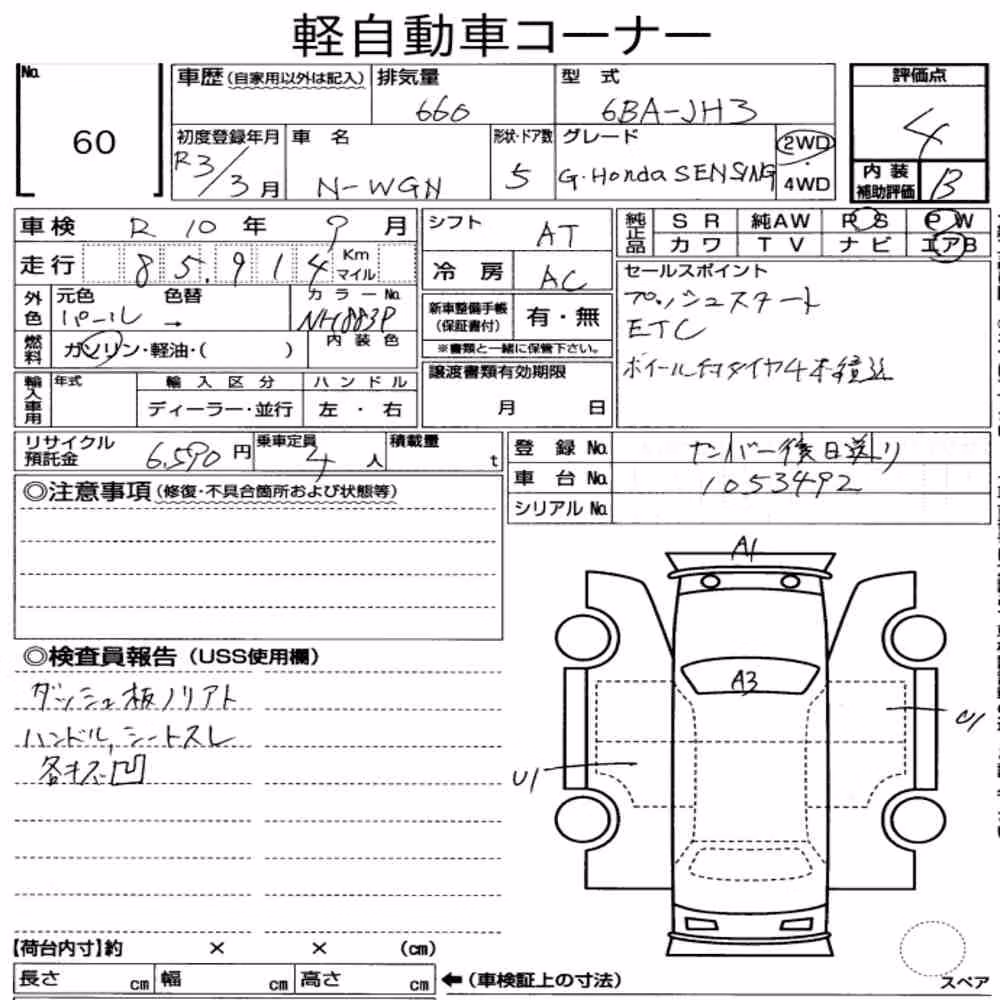 軽自動車コーナー
No. 60
車歴(自家用以外は記入)
排気量 660
型式 6BA-JH3
評価点 4
初度登録年月 R3/3月
車名 N-WGN
形状・ドア数 5
グレード G・Honda SENSING
2WD・4WD
内装補助評価 B
車検 R10年9月
走行 85,914 Km マイル
外色 元色 パール 色替 →
カラーNo. NH883P
燃料 ガソリン・軽油・( )
内装色
輸入車用 年式
輸入区分 ディーラー・並行
ハンドル 左・右
シフト AT
冷房 AC
新車整備手帳(保証書付) 有・無
※書類と一緒に保管下さい。
譲渡書類有効期限
月 日
純正品 SR 純AW PS PW
カワ TV ナビ エアB
セールスポイント
プッシュスタート
ETC
ホイール付タイヤ4本積込
リサイクル預託金 6,590円
乗車定員 4人
積載量 t
登録No. ナンバー後日送り
車台No. 1053492
シリアルNo.
◎注意事項(修復・不具合箇所および状態等)
◎検査員報告(USS使用欄)
ダッシュ板ノリアト
ハンドル,シートスレ
各キズ凹
A1
A3
U1
U1
【荷台内寸】約 × × (cm)
長さ cm 幅 cm 高さ cm ←(車検証上の寸法)
スペア